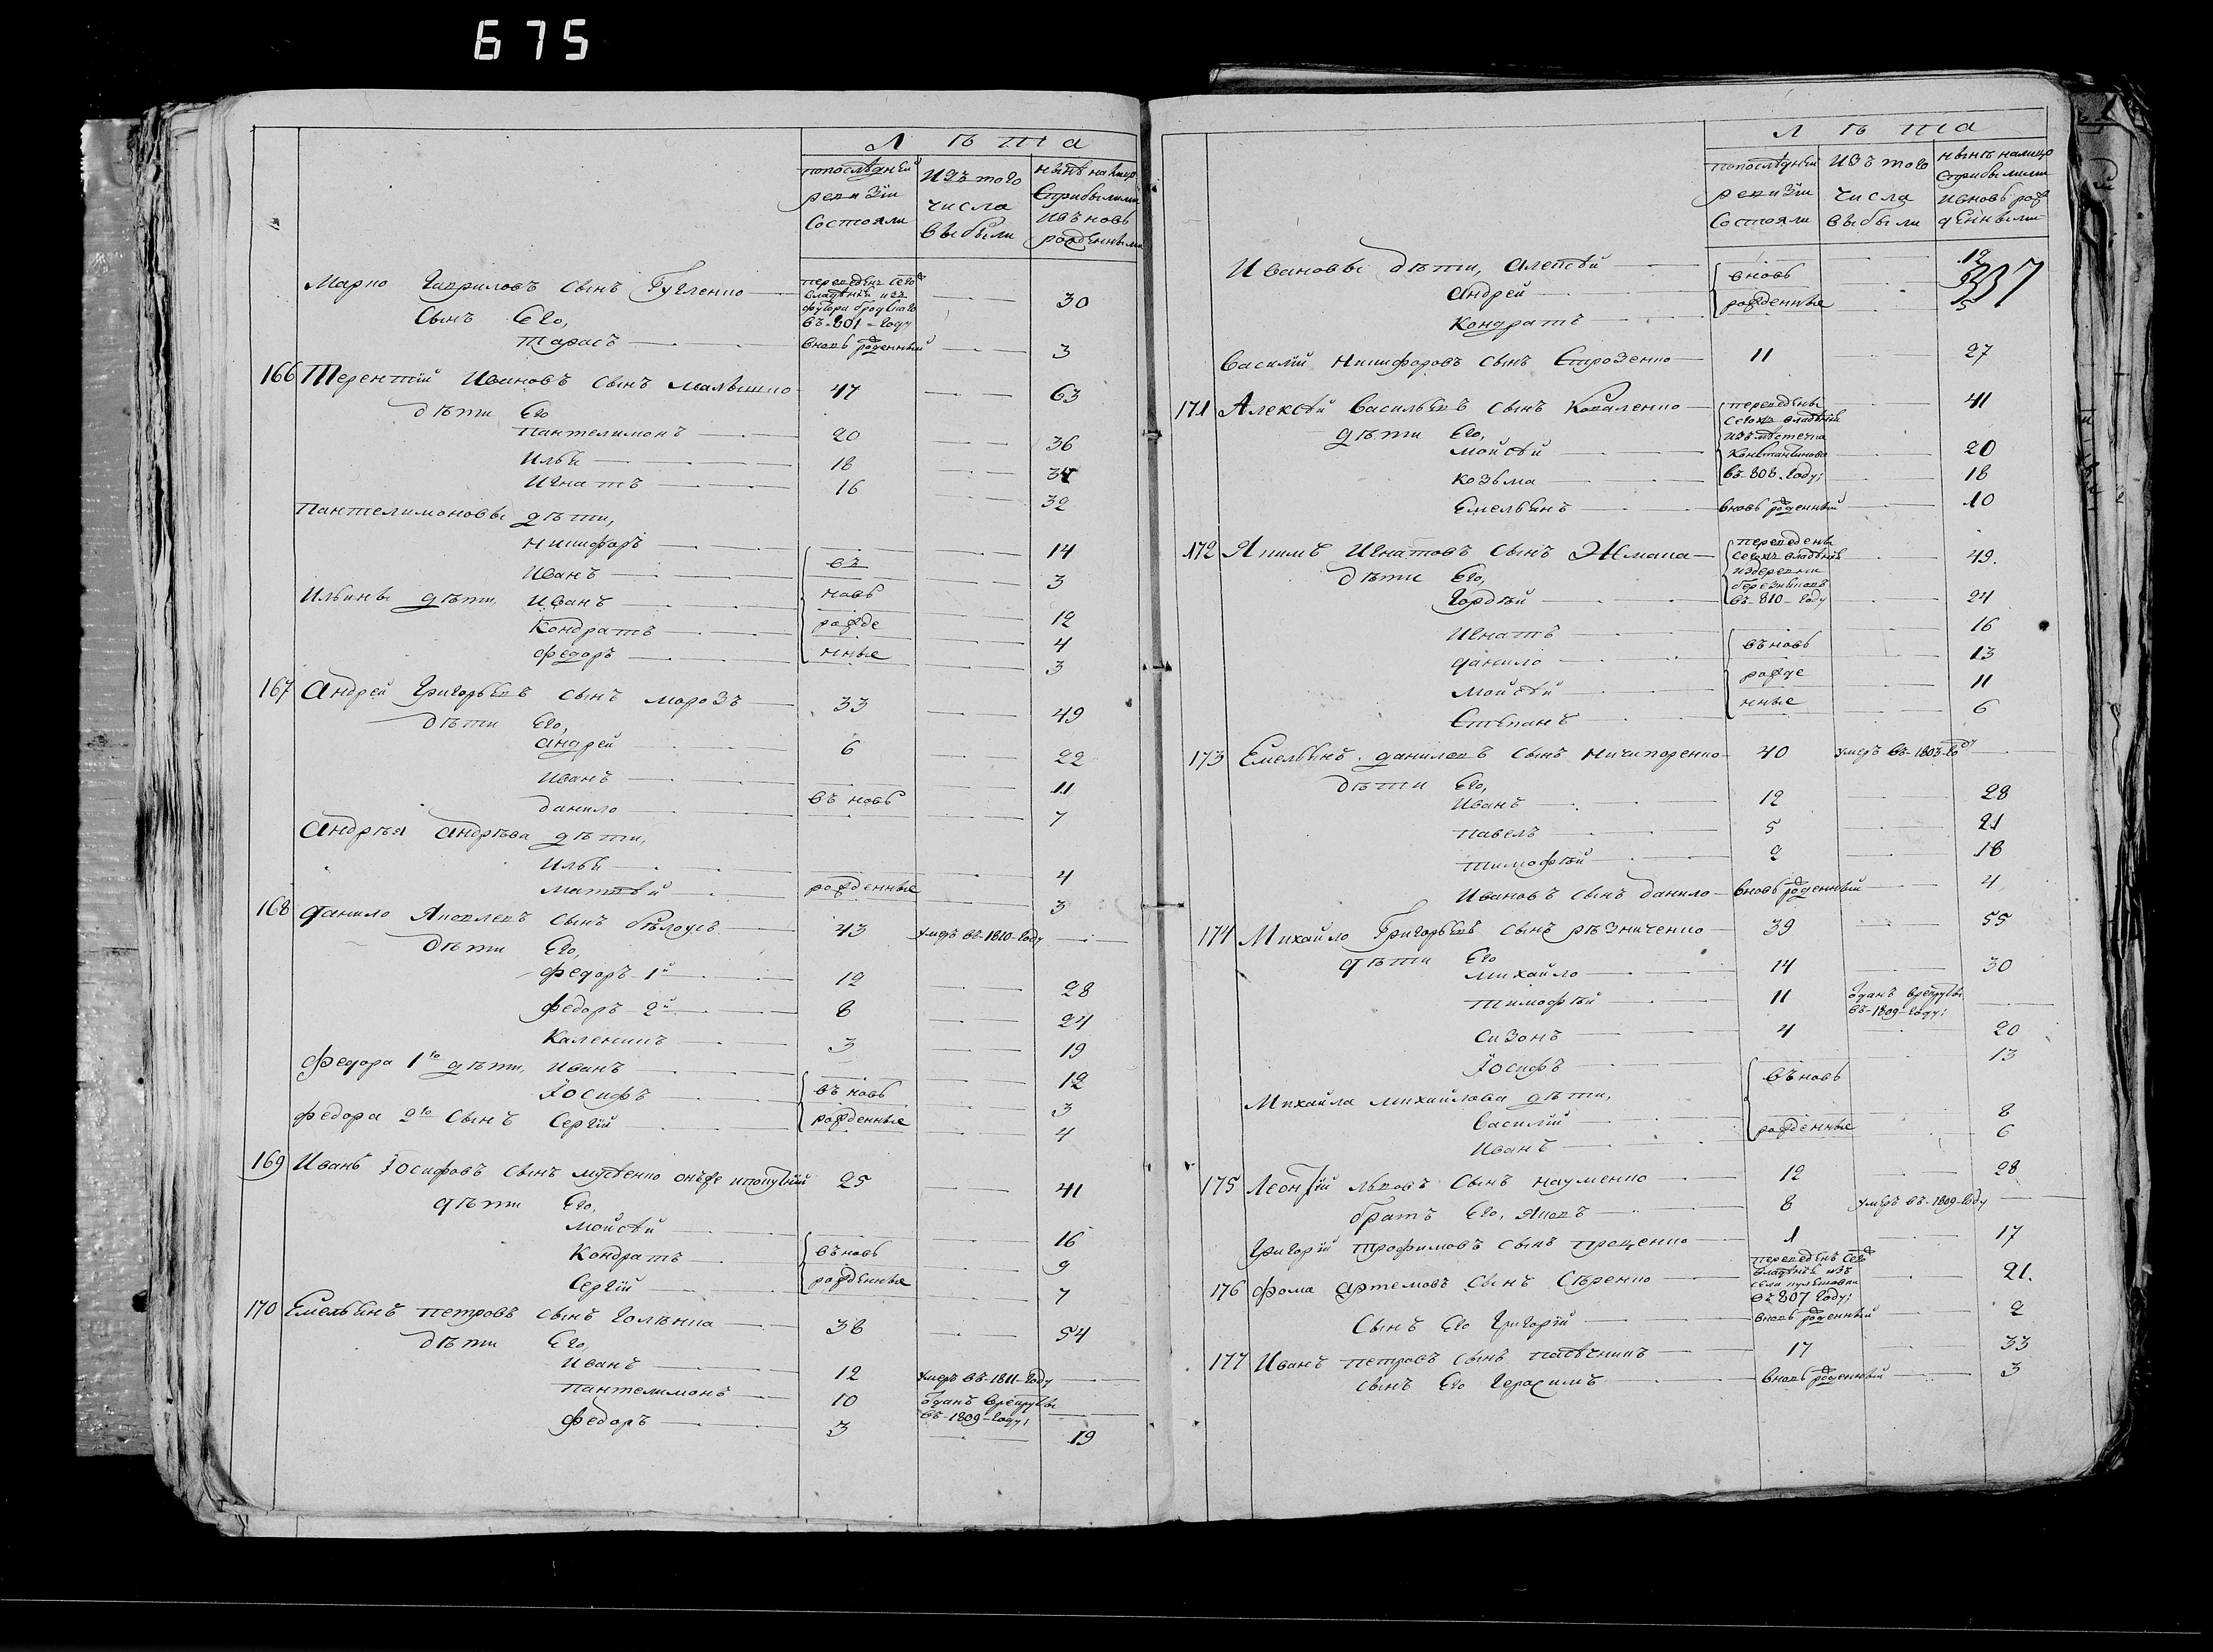 675
Лѣта
попослѣдней ревизіи состояли
изъ того числа выбыли
нынѣ налицо сприбылыми извновь рожденными
Марко Гавриловъ сынъ Гученко переведенъ сегожъ владѣнія изъ въ 801 году — 30
сынъ Его,
Тарасъ вновь рожденный — 3
166 Терентій Ивановъ сынъ Малышко 47 — 63
дѣти Его
Пантелимонъ 20 — 36
Илья 18 — 34
Игнатъ 16 — 32
Пантелимоновы дѣти,
Никифоръ — 14
Иванъ въ — 3
Ильины дѣти, Иванъ новь — 19
Кондратъ рожде — 4
Федоръ нные — 3
167 Андрей Григорьевъ сынъ Морозъ 33 — 49
дѣти Его,
Андрей 6 — 22
Иванъ — 11
Данило въ новь — 7
Андрѣя Андрѣева дѣти,
Илья — 4
Матвѣй рожденные — 3
168 Данило Яковлевъ сынъ Бѣлоусъ 43 умеръ въ 1810 году —
дѣти Его,
Федоръ 1й 12 — 28
Федоръ 2й 8 — 24
Каленикъ 3 — 19
Федора 1го дѣти, Иванъ — 12
Іосифъ въ новь — 3
Федора 2го сынъ Сергій рожденные — 4
169 Иванъ Іосифовъ сынъ онъже 25 — 41
дѣти Его,
Мойсѣй — 16
Кондратъ въновь — 9
Сергій рожденные — 7
170 Емельянъ Петровъ сынъ Голѣнка 38 — 54
дѣти Его,
Иванъ 12 умеръ въ 1811 году —
Пантелимонъ 10 отданъ врекруты въ 1809 году; —
Федоръ 3 — 19
Лѣта
попослѣдней ревизіи состояли
изъ того числа выбыли
нынѣ налицо сприбылыми ивновь рожденными
Ивановы дѣти, Алексѣй — 12
337
Андрей вновь
Кондратъ рожденные — 5
Василій Никифоровъ сынъ Строзенко 11 — 27
171 Алексѣй Васильевъ сынъ Коваленко переведены сегожъ владѣнія изъ мѣстечка Константинова въ 808 году; — 41
дѣти Его,
Мойсѣй — 20
Козьма — 18
Емельянъ вновь рожденный — 10
172 Якимъ Игнатовъ сынъ Жмака переведены сегожъ владѣнія издеревни въ 810 году — 49.
дѣти Его,
Гордѣй — 24
Игнатъ — 16
Данило въновь — 13
Мойсѣй рожде — 11
Степанъ нные — 6
173 Емельянъ Данилевъ сынъ Ничипоренко 40 умеръ въ 1803 году —
дѣти Его,
Иванъ 12 — 28
Павелъ 5 — 21
Тимофѣй 2 — 18
Ивановъ сынъ Данило вновь рожденный — 4
174 Михайло Григорьевъ сынъ Рѣзниченко 39 — 55
дѣти Его
Михайло 14 — 30
Тимофѣй 11 отданъ врекруты въ 1809 году; —
Сизонъ 4 — 20
Іосифъ — 13
Михайла Михайлова дѣти, въновь
Василій — 8
Иванъ рожденные — 6
175 Леонтій Львовъ сынъ Науменко 12 — 28
братъ Его, Яковъ 8 умеръ въ 1809 году —
Григорій Трофимовъ сынъ Проценко 1 — 17
176 Фома Артемовъ сынъ Сѣренко переведенъ сегожъ владѣнія изъ села въ 807 году; — 21.
сынъ Его Григорій вновь рожденный — 2
177 Иванъ Петровъ сынъ 17 — 33
сынъ Его Герасимъ вновь рожденный — 3